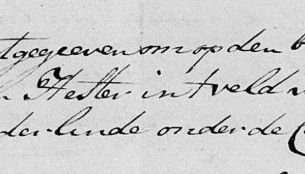 tgegeeven om op den b
n Hester in t veld
der linde onder de C